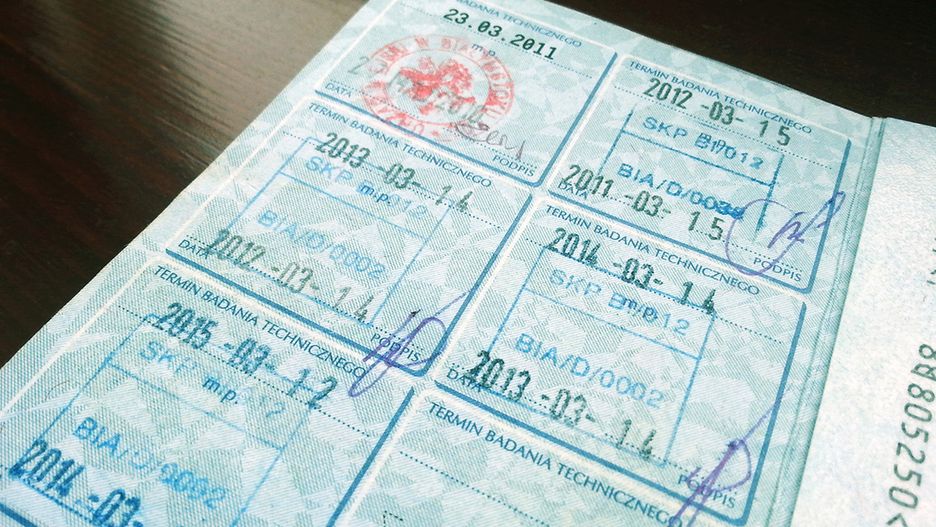 TERMIN BADANIA TECHNICZNEGO
23.03.2011
m.p.
DATA
PODPIS
TERMIN BADANIA TECHNICZNEGO
2012-03-15
SKP
BIA/D/0038
2011-03-15
DATA
PODPIS
TERMIN BADANIA TECHNICZNEGO
2013-03-14
SKP m.p.
BIA/D/0002
2012-03-14
DATA
PODPIS
TERMIN BADANIA TECHNICZNEGO
2014-03-14
SKP
BIA/D/0002
2013-03-14
DATA
PODPIS
TERMIN BADANIA TECHNICZNEGO
2015-03-12
SKP m.p.
BIA/D/0002
2014-03-
TERMIN BADANIA TECHNICZNEGO
8805250<